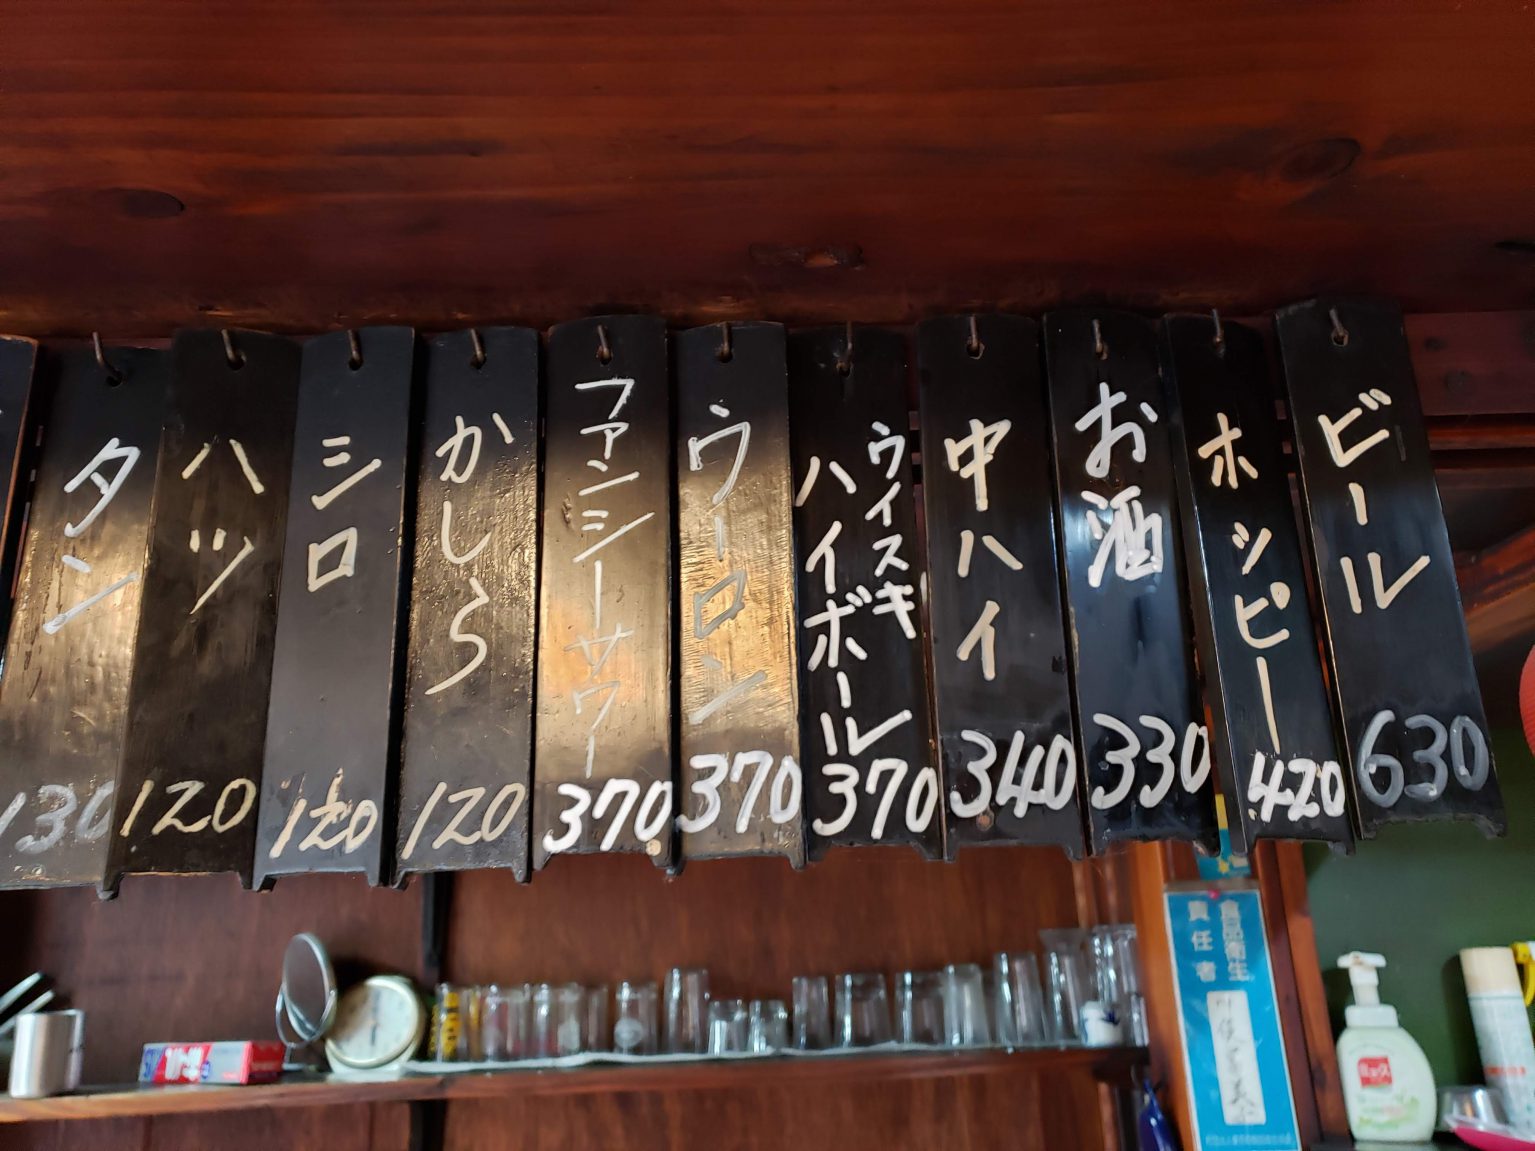 ビール
630
ホッピー
420
お酒
330
中ハイ
340
ウイスキ
ハイボール
370
ウーロン
370
ファンシーサワー
370
かしら
120
シロ
120
ハツ
120
タン
130
食品衛生
責任者
ミューズ